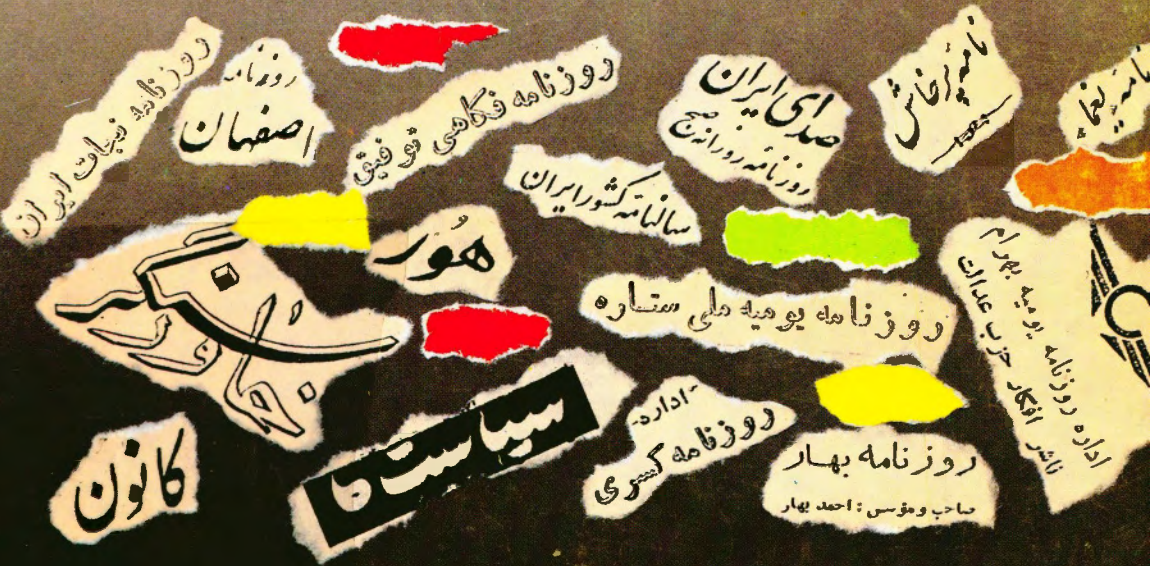 روزنامه نجات ایران
روزنامه
اصفهان
روزنامه فکاهی توفیق
صدای ایران
روزنامه روزانه صبح
نامه پرخاش
سالنامه کشور ایران
هُور
روزنامه یومیه ملی ستاره
اداره روزنامه یومیه بهرام
ناشر افکار حزب عدالت
کانون
سیاست ما
اداره
روزنامه کسری
روزنامه بهار
صاحب و مؤسس : احمد بهار